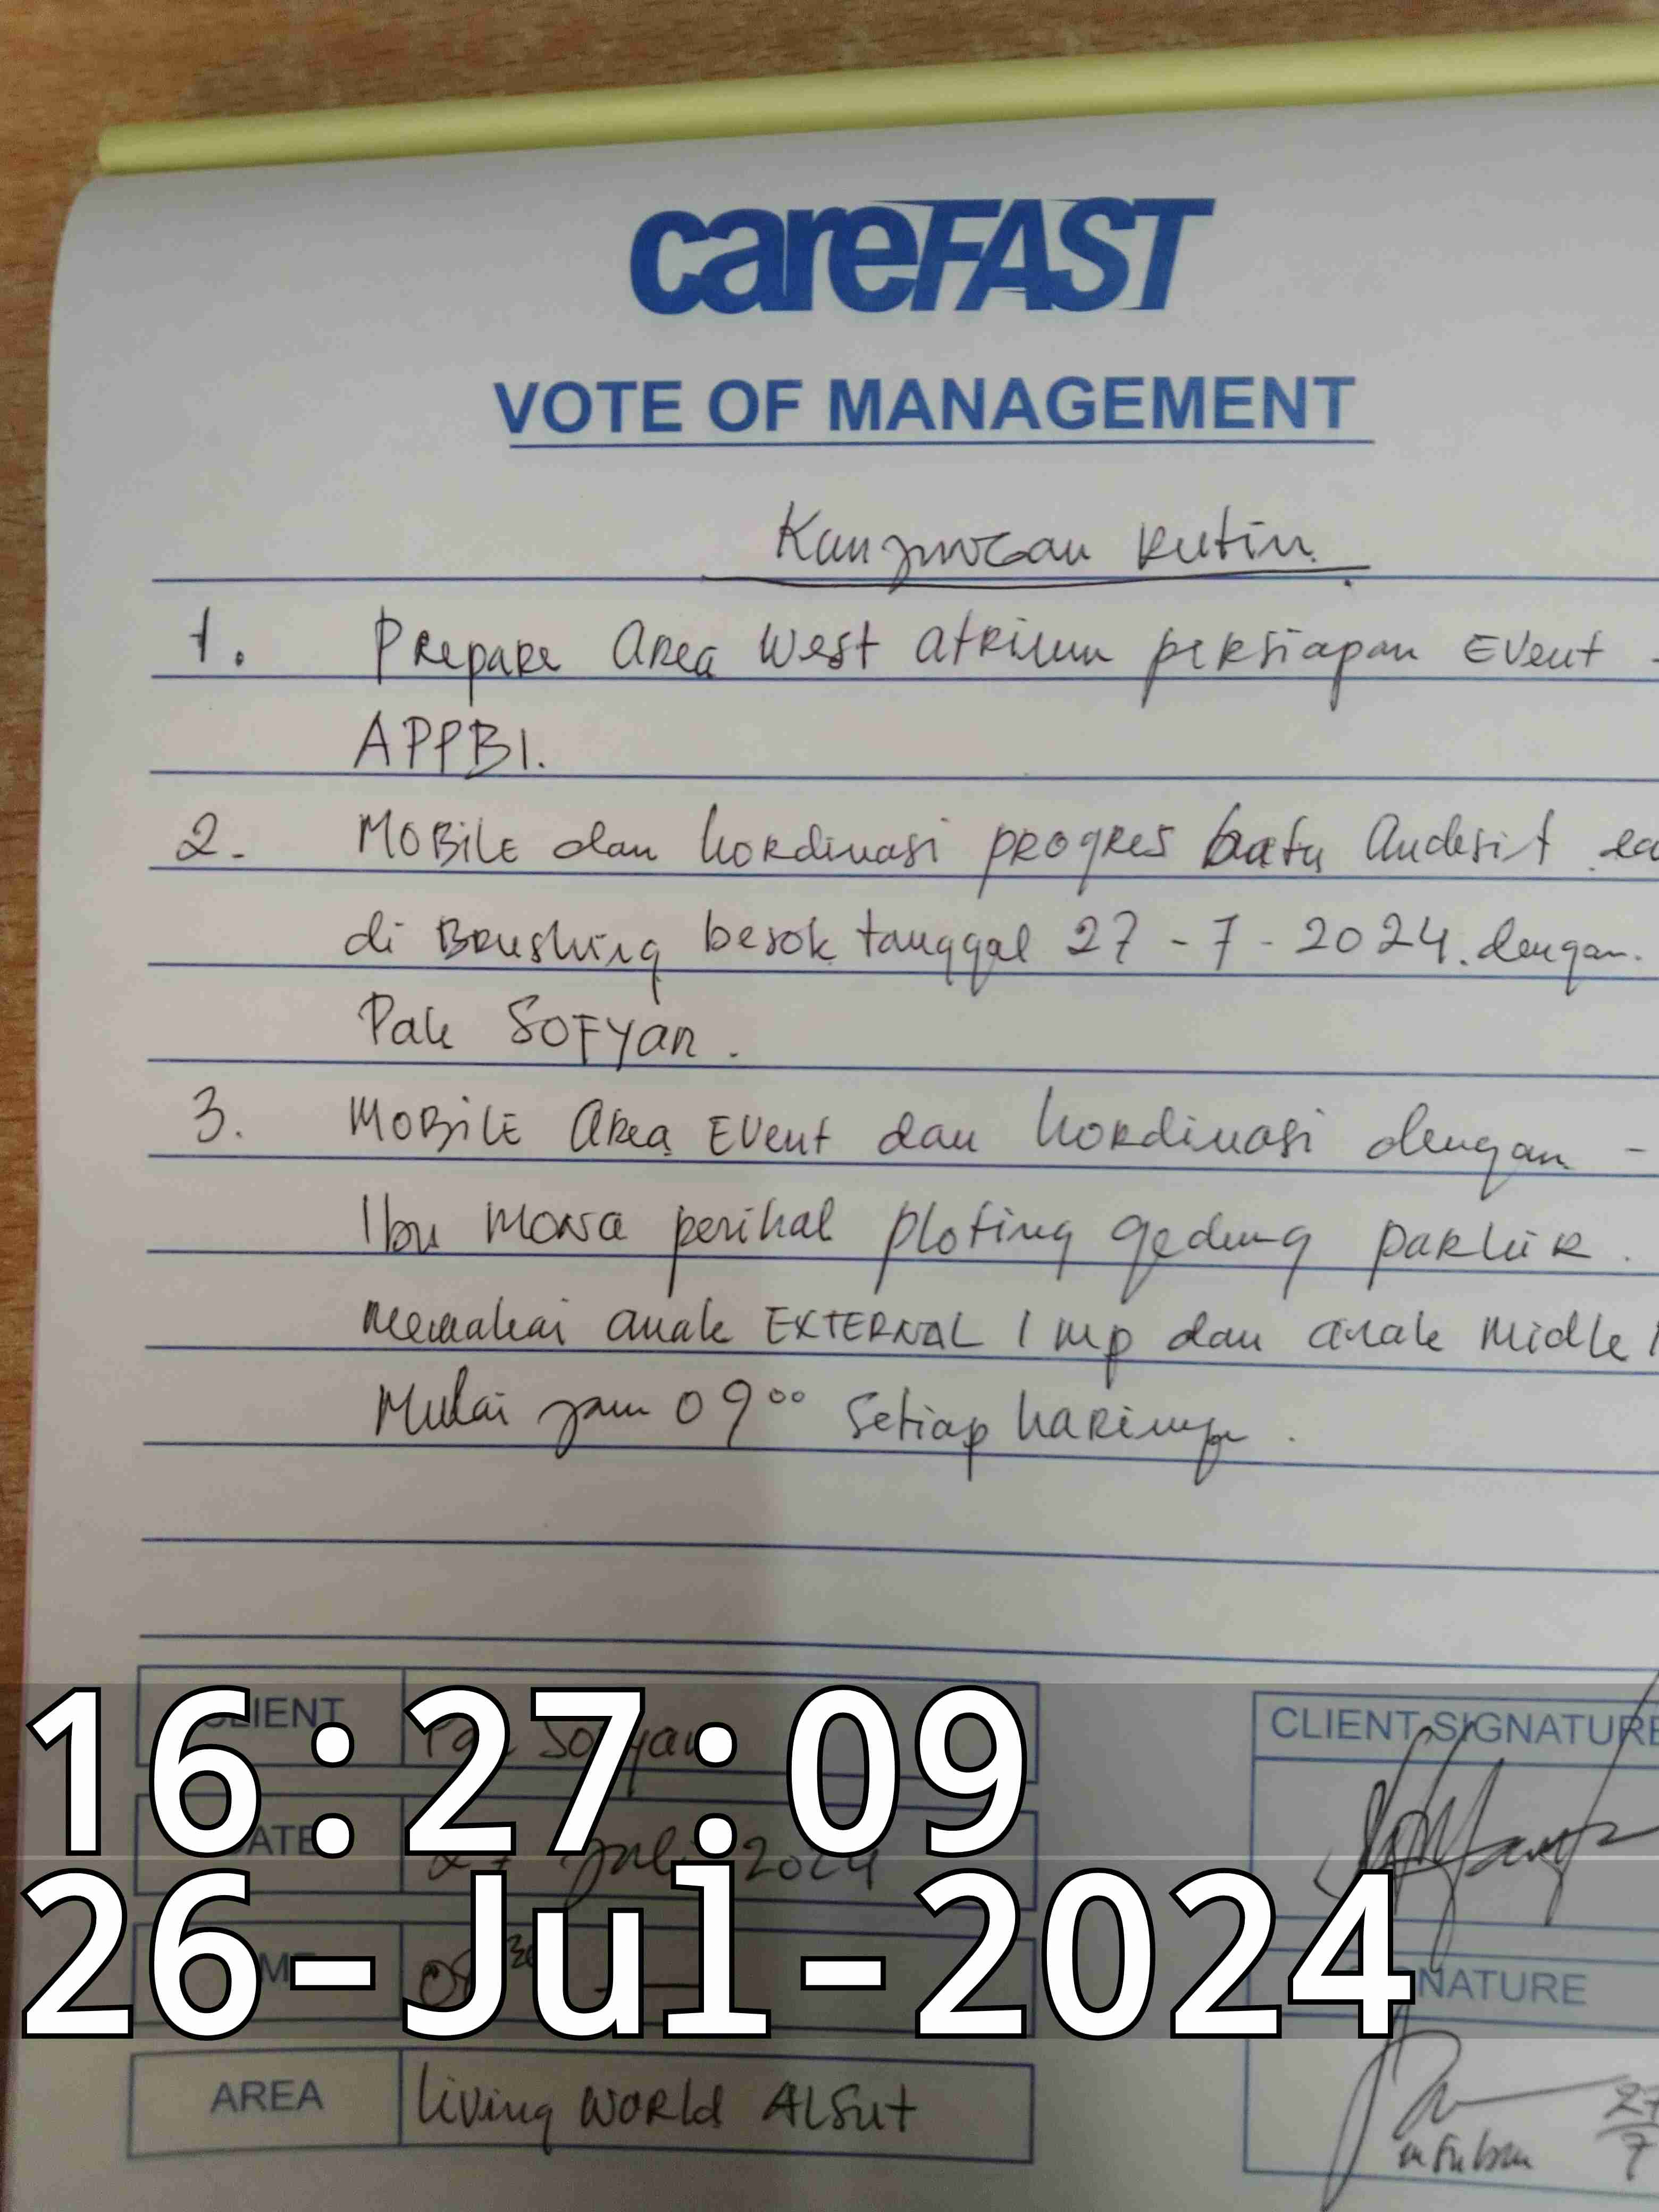 careFAST
VOTE OF MANAGEMENT
Kunjungan Rutin.
1. Prepare Area West Atrium persiapan Event -
APPBI.
2. Mobile dan kordinasi progres batu Andesit
di Brushing besok tanggal 27 - 7 - 2024. dengan.
Pak SOFYAN.
3. Mobile Area Event dan kordinasi dengan -
Ibu Mona perihal ploting gedung parkir.
Memakai anak EXTERNAL 1 mp dan anak Midle
Mulai jam 09 00 Setiap harinya.
CLIENT Pak Sofyan
CLIENT SIGNATURE
16:27:09
DATE Juli 2024
26-Jul-2024
SIGNATURE
AREA Living World ALSUT
27
7